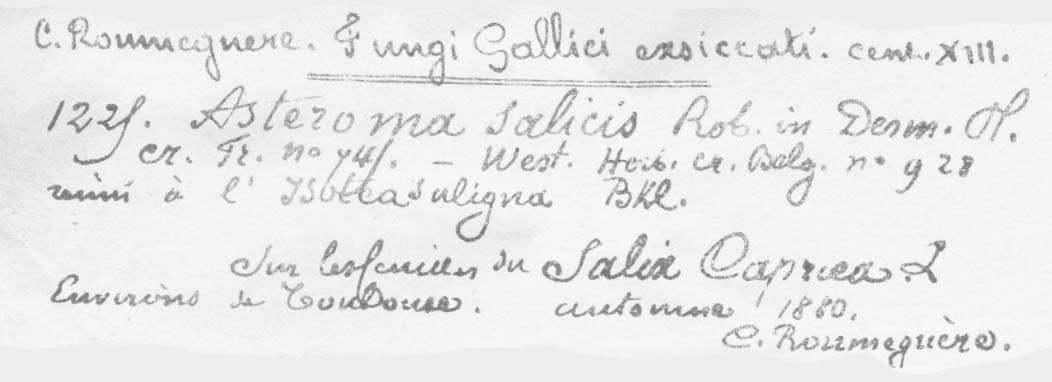 C. Roumeguere. Fungi Gallici exsiccati. cent. XIII.
1225. Asteroma Salicis Rob. in Desm. Pl.
cr. Fr. nº 741. – West. Herb. cr. Belg. nº 928
réuni à l'
Sur les feuilles du Salix Caprea L
Environs de Toulouse. automne 1880.
C. Roumeguère.